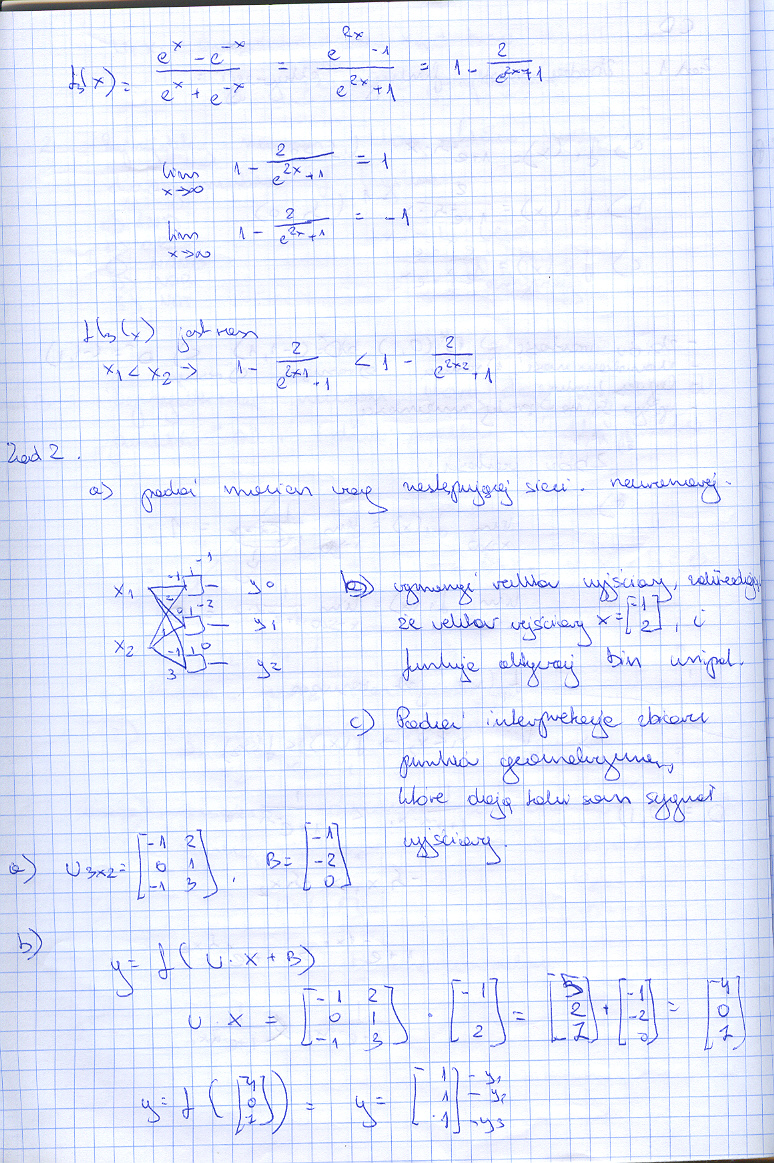 f₃(x) = (e^x - e^-x)/(e^x + e^-x) = (e^2x - 1)/(e^2x + 1) = 1 - 2/(e^2x + 1)
lim x→∞ 1 - 2/(e^2x + 1) = 1
lim x→∞ 1 - 2/(e^2x + 1) = -1
f₃(x) jest rosn
x₁ < x₂ → 1 - 2/(e^2x1 + 1) < 1 - 2/(e^2x2 + 1)
Zad 2.
a) podać macierz wag następującej sieci neuronowej.
x₁ -1 -1 y₀
2 0 1 -2 y₁
x₂ -1 1 0 y₂
3
b) wyznaczyć wektor wyjściowy,
że wektor wejściowy x = [-1 2], i
funkcję aktywacji bin unipol.
c) Podać interpretację zbioru
punktów geometryczną,
które dają taki sam sygnał
wyjściowy.
a) U 3x2 = [-1 2; 0 1; -1 3], B = [-1; -2; 0]
b)
y = f(U·X + B)
U·X = [-1 2; 0 1; -1 3] · [-1; 2] = [5; 2; 7] + [-1; -2; 0] = [4; 0; 7]
y = f([4; 0; 7]) = y = [1; 1; 1] - y₁ - y₂ - y₃